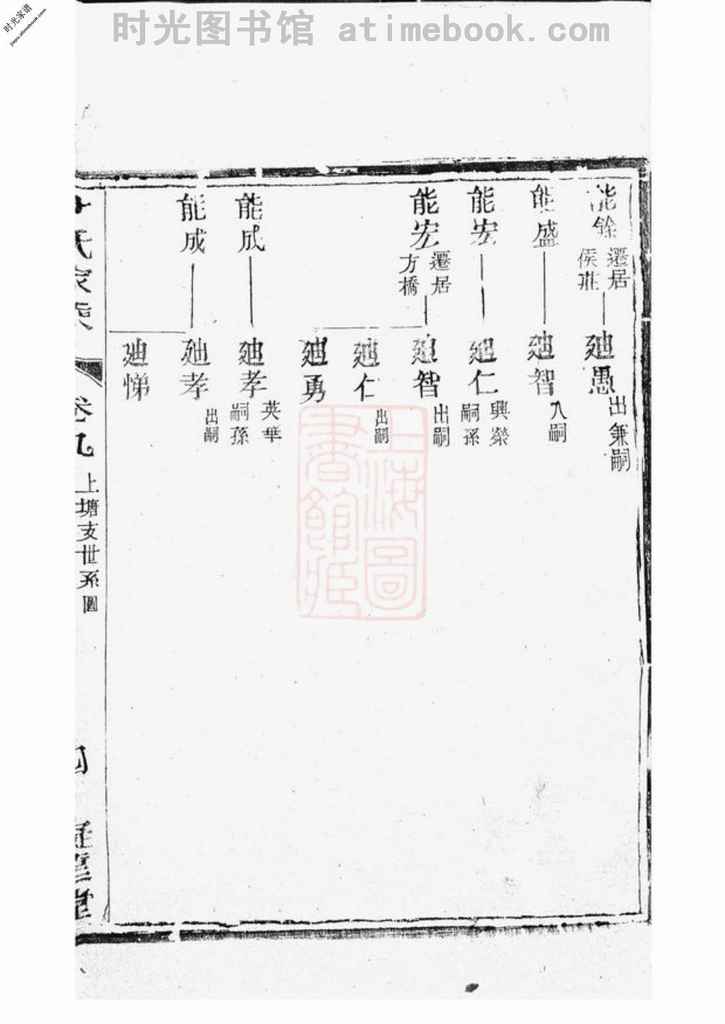 时光图书馆 atimebook.com
时光家谱
能餘
遷居
侯莊
廸愚
出兼嗣
能盛
廸智
入嗣
能宏
廸仁
興榮
嗣孫
能宏
遷居
方橋
廸智
出嗣
廸仁
出嗣
廸勇
能成
廸孝
英華
嗣孫
能成
廸孝
出嗣
廸悌
氏家乘
卷九
上塘支世系圖
上海圖
書館藏